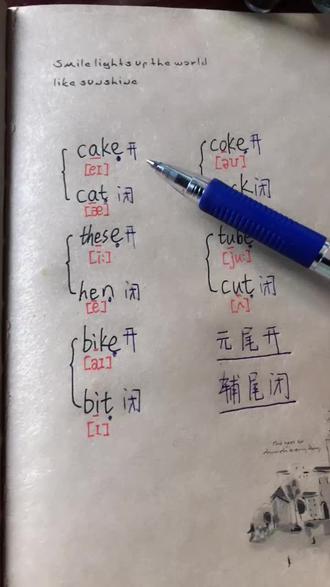 Smile lights up the world
like sunshine
cake 开
[eɪ]
cat 闭
[æ]
these 开
[i:]
hen 闭
[e]
bike 开
[aɪ]
bit 闭
[ɪ]
coke 开
[əʊ]
ck 闭
tube
[ju:]
cut 闭
[ʌ]
元尾开
辅尾闭